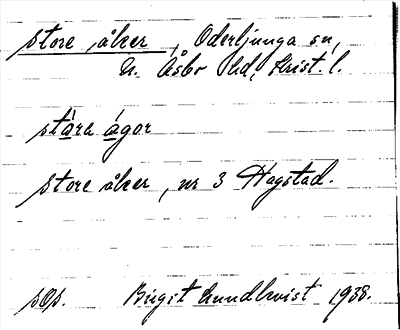 store åker, Oderljunga sn,
N. Åsbo hd, Krist. l.
stǻra ágor
store åker, nr 3 Hagstad.
sop. Birgit Lundkvist 1938.